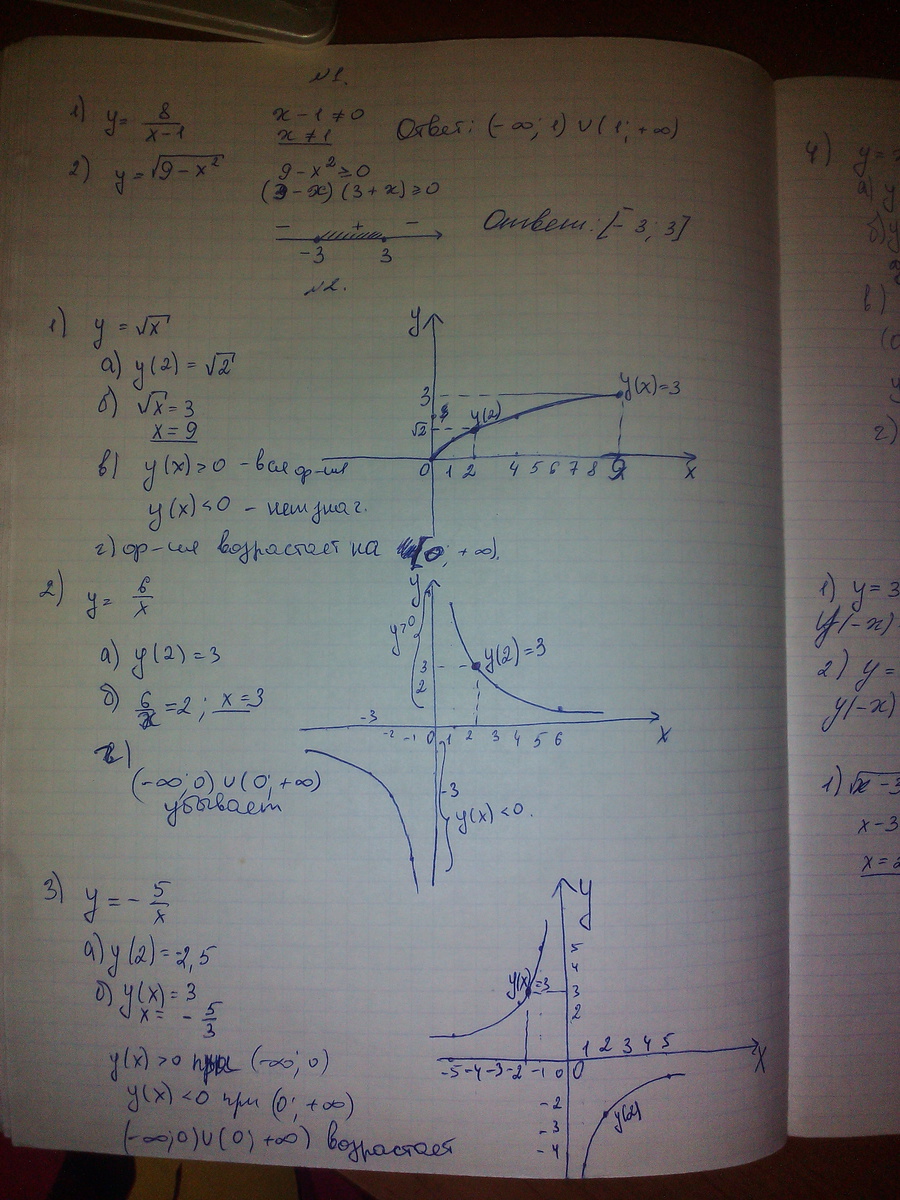 №1.
1) y = 8/(x-1) x - 1 ≠ 0
x ≠ 1 Ответ: (-∞; 1) ∪ (1; +∞)
2) y = √(9 - x²) 9 - x² ≥ 0
(3 - x)(3 + x) ≥ 0
- + -
-3 3 Ответ: [-3; 3]
№2.
1) y = √x
а) y(2) = √2
б) √x = 3
x = 9
в) y(x) > 0 - вся ф-ия
y(x) < 0 - нет знач.
г) ф-ия возрастает на [0; +∞).
y
3 y(x) = 3
√2 y(2)
0 1 2 4 5 6 7 8 9 x
2) y = 6/x
а) y(2) = 3
б) 6/x = 2; x = 3
г)
(-∞; 0) ∪ (0; +∞)
убывает
y
y>0
3 y(2) = 3
2
-3
-2 -1 0 1 2 3 4 5 6 x
-3
y(x) < 0.
3) y = - 5/x
а) y(2) = -2,5
б) y(x) = 3
x = - 5/3
y(x) > 0 при (-∞; 0)
y(x) < 0 при (0; +∞)
(-∞; 0) ∪ (0; +∞) возрастает
y
5
4
y(x) = 3 3
2
1 2 3 4 5 x
-5 -4 -3 -2 -1 0 0
-2 y(2)
-3
-4
4) y =
а) y
б) y
в)
г)
1) y = 3
y(-x)
2) y =
y(-x)
1) √x - 3
x - 3
x = 2